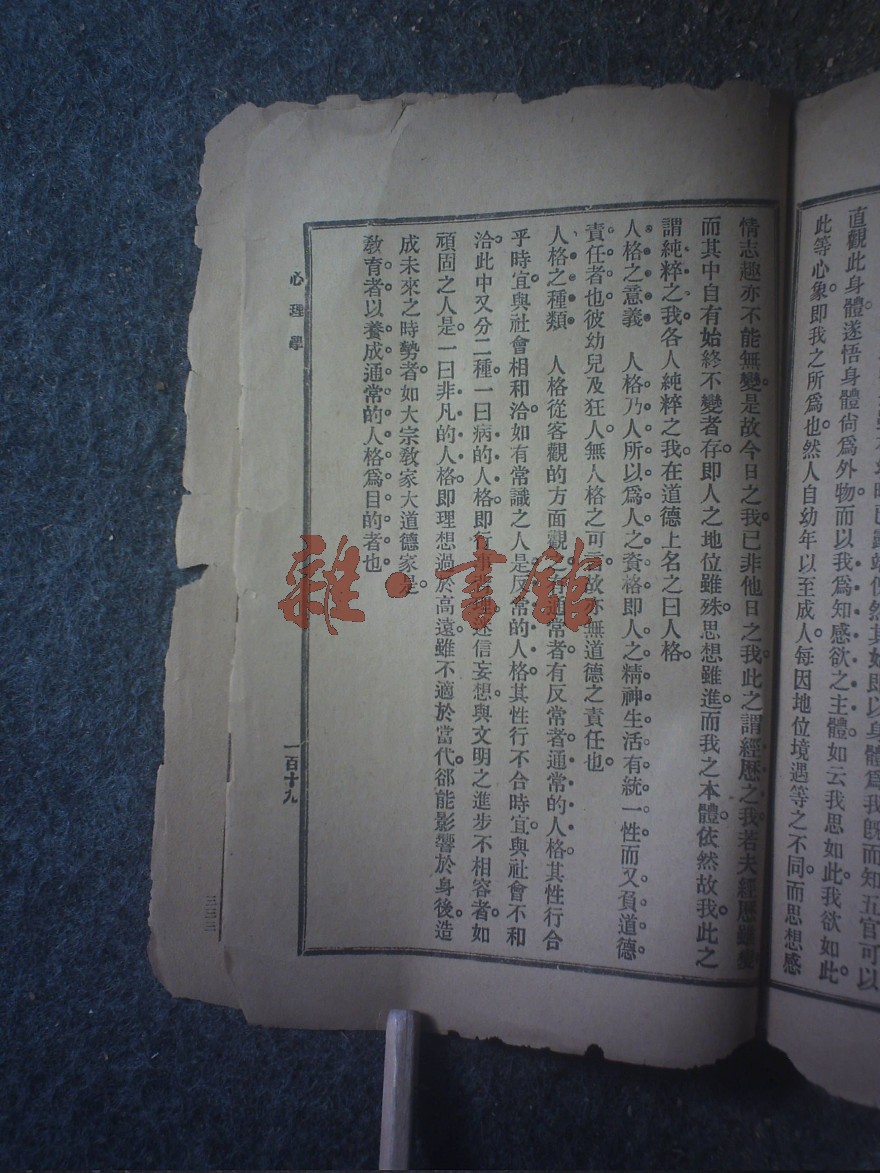 直觀此身體遂悟身體尙爲外物而以我爲知感欲之主體如云我思如此我欲如此
此等心象卽我之所爲也然人自幼年以至成人每因地位境遇等之不同而思想感
情志趣亦不能無變是故今日之我已非他日之我此之謂經歷之我若夫經歷雖變
而其中自有始終不變者存卽人之地位雖殊思想雖進而我之本體依然故我此之
謂純粹之我各人純粹之我在道德上名之曰人格
人格之意義　人格乃人所以爲人之資格卽人之精神生活有統一性而又負道德
責任者也彼幼兒及狂人無人格之可言故亦無道德之責任也
人格之種類　人格從客觀的方面觀有通常者有反常者通常的人格其性行合
乎時宜與社會相和洽如有常識之人是反常的人格其性行不合時宜與社會不和
洽此中又分二種一曰病的人格卽行迷信妄想與文明之進步不相容者如
頑固之人是一曰非凡的人格卽理想過於高遠雖不適於當代卻能影響於身後造
成未來之時勢者如大宗敎家大道德家是
敎育者以養成通常的人格爲目的者也
心理學
一百十九
三三三
雜·書館